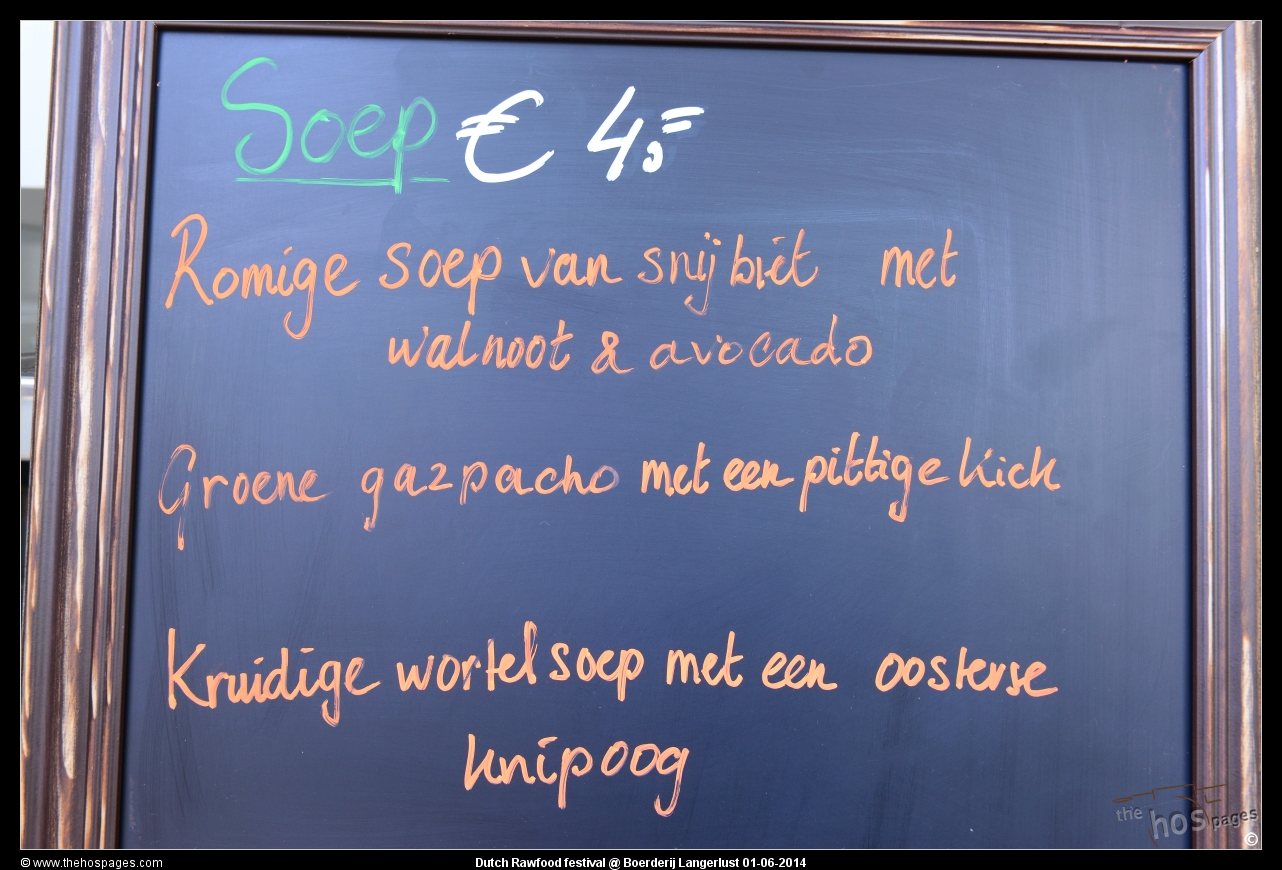 Soep € 4,=
Romige soep van snijbiet met
walnoot & avocado
Groene gazpacho met een pittige kick
Kruidige wortelsoep met een oosterse
knipoog
the hos pages
©
© www.thehospages.com
Dutch Rawfood festival @ Boerderij Langerlust 01-06-2014